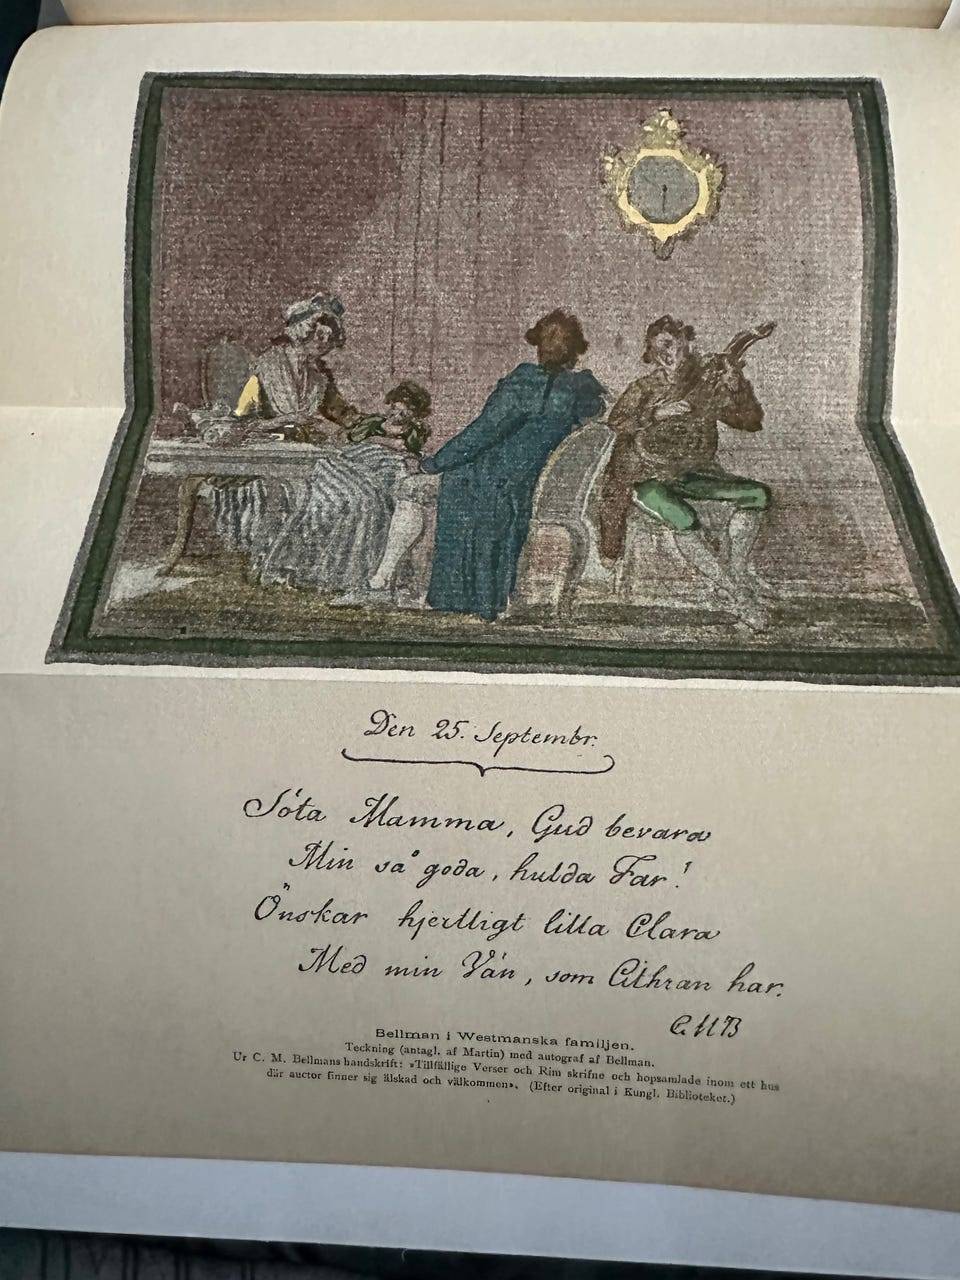 Den 25. Septembr.
Söta Mamma, Gud bevara
Min så goda, hulda Far!
Önskar hjertligt lilla Clara
Med min Vän, som Cithran har.
C. M B
Bellman i Westmanska familjen.
Teckning (antagl. af Martin) med autograf af Bellman.
Ur C. M. Bellmans handskrift: »Tillfällige Verser och Rim skrifne och hopsamlade inom ett hus
där auctor finner sig älskad och välkommen». (Efter original i Kungl. Biblioteket.)